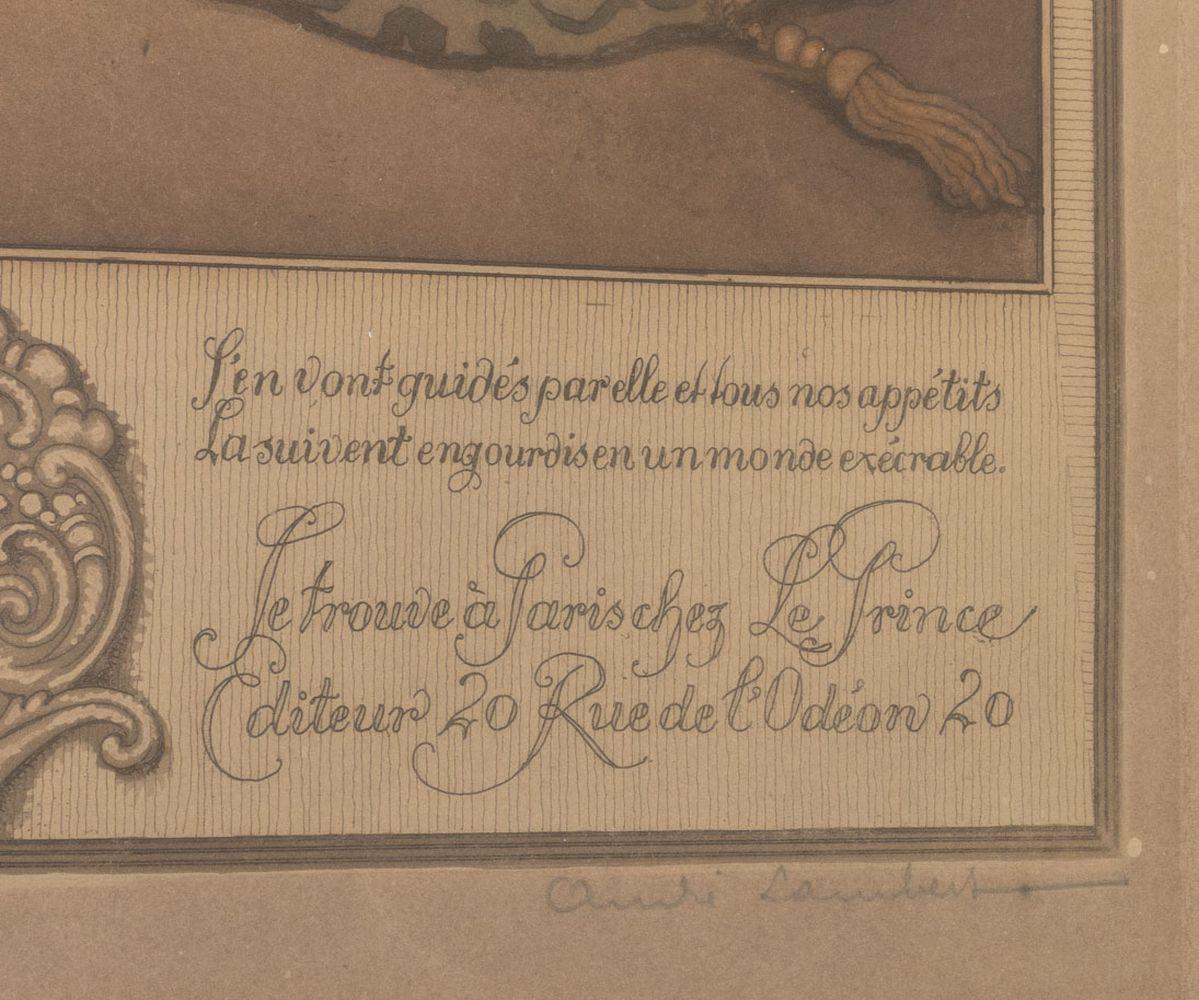 S'en vont guidés par elle et tous nos appétits
La suivent engourdis en un monde exécrable.
Se trouve à Paris chez Le Prince
Editeur 20 Rue de l'Odéon 20
André Lambert